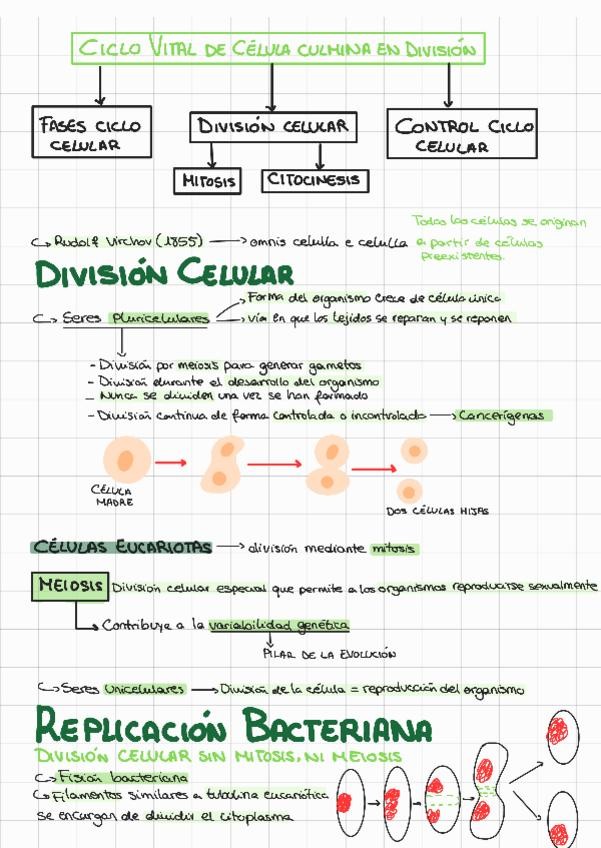 CICLO VITAL DE CÉLULA CULMINA EN DIVISIÓN
FASES CICLO CELULAR
DIVISIÓN CELULAR
CONTROL CICLO CELULAR
MITOSIS
CITOCINESIS
Rudolf Virchov (1855) → omnis celulla e celulla
Todas las células se originan
a partir de células
preexistentes.
DIVISIÓN CELULAR
Seres Pluricelulares
Forma del organismo crece de célula única
vía en que los tejidos se reparan y se reponen
- División por meiosis para generar gametos
- División durante el desarrollo del organismo
- Nunca se dividen una vez se han formado
- División continua de forma controlada o incontrolada → Cancerígenas
CÉLULA
MADRE
DOS CÉLULAS HIJAS
CÉLULAS EUCARIOTAS → división mediante mitosis
MEIOSIS División celular especial que permite a los organismos reproducirse sexualmente
Contribuye a la variabilidad genética
PILAR DE LA EVOLUCIÓN
Seres Unicelulares → División de la célula = reproducción del organismo
REPLICACIÓN BACTERIANA
DIVISIÓN CELULAR SIN MITOSIS, NI MEIOSIS
Fisión bacteriana
Filamentos similares a tubulina eucariótica
se encargan de dividir el citoplasma